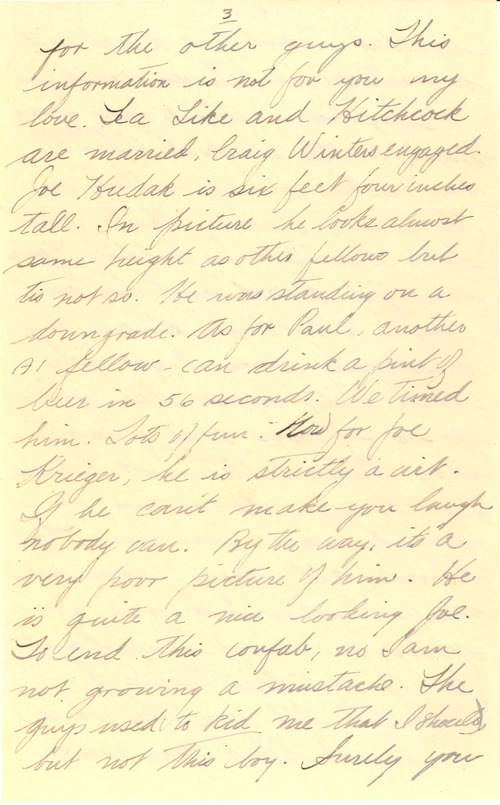 3
for the other guys. This
information is not for you my
love. Lea Like and Hitchcock
are married, Craig Winters engaged.
Joe Hudak is six feet four inches
tall. In picture he looks almost
same height as other fellows but
tis not so. He was standing on a
downgrade. As for Paul, another
A1 fellow - can drink a pint of
beer in 56 seconds. We timed
him. Lots of fun. Now for Joe
Krieger, he is strictly a
If he can't make you laugh
nobody can. By the way, it's a
very poor picture of him. He
is quite a nice looking Joe.
To end this confab, no I am
not growing a mustache. The
guys used to kid me that I should,
but not this boy. Surely you